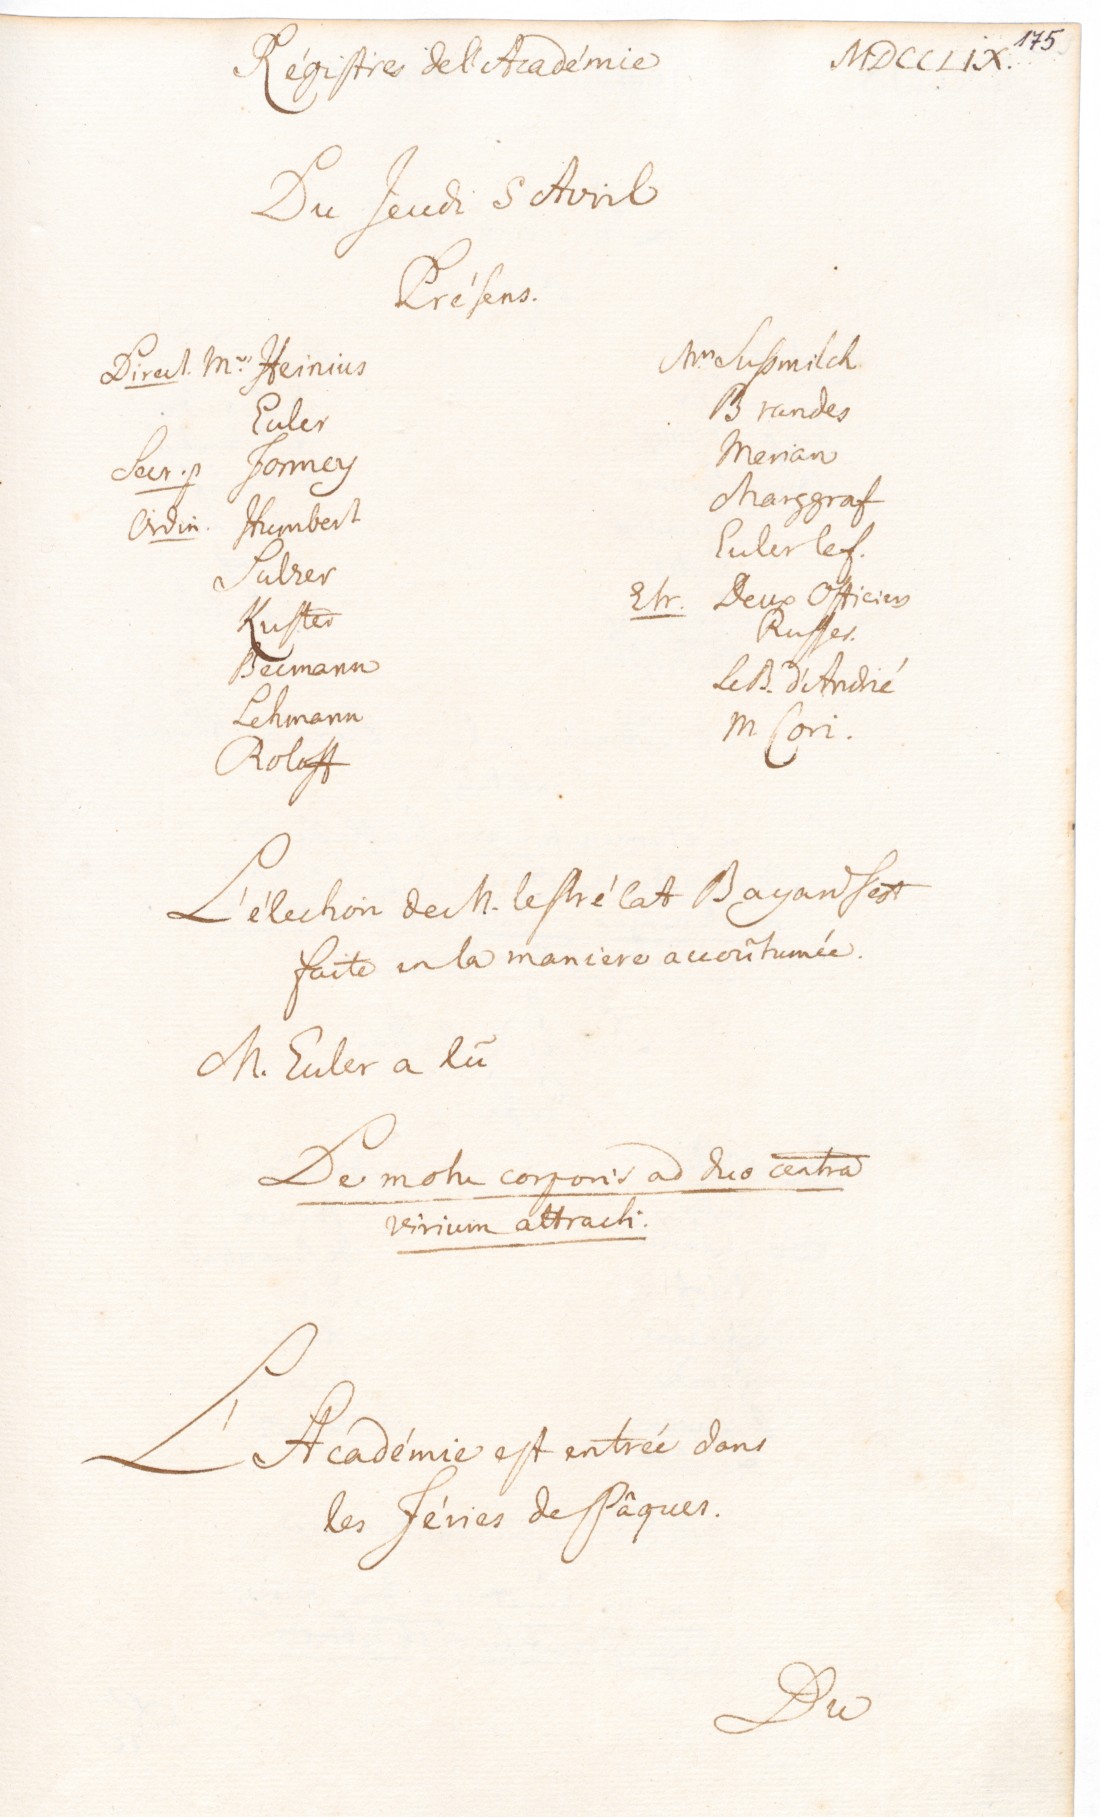 Régistres de l'Académie MDCCLIX. 175
Du Jeudi 5 Avril
Présens.
Direct. Mrs Heinius
Euler
Secr. p Formey
Ordin. Humbert
Sulzer
Kuster
Becmann
Lehmann
Roloff
Mrs Susmilch
Brandes
Merian
Marggraf
Euler le f.
Etr. Deux Officiers
Russes.
Le B. d'André
M Cori.
L'élection de M. le Prélat Bayard s'est
faite en la maniere accoûtumée.
M. Euler a lû
De motu corporis ad duo centra
virium attracti.
L'Académie est entrée dans
les Féries de Pâques.
Du